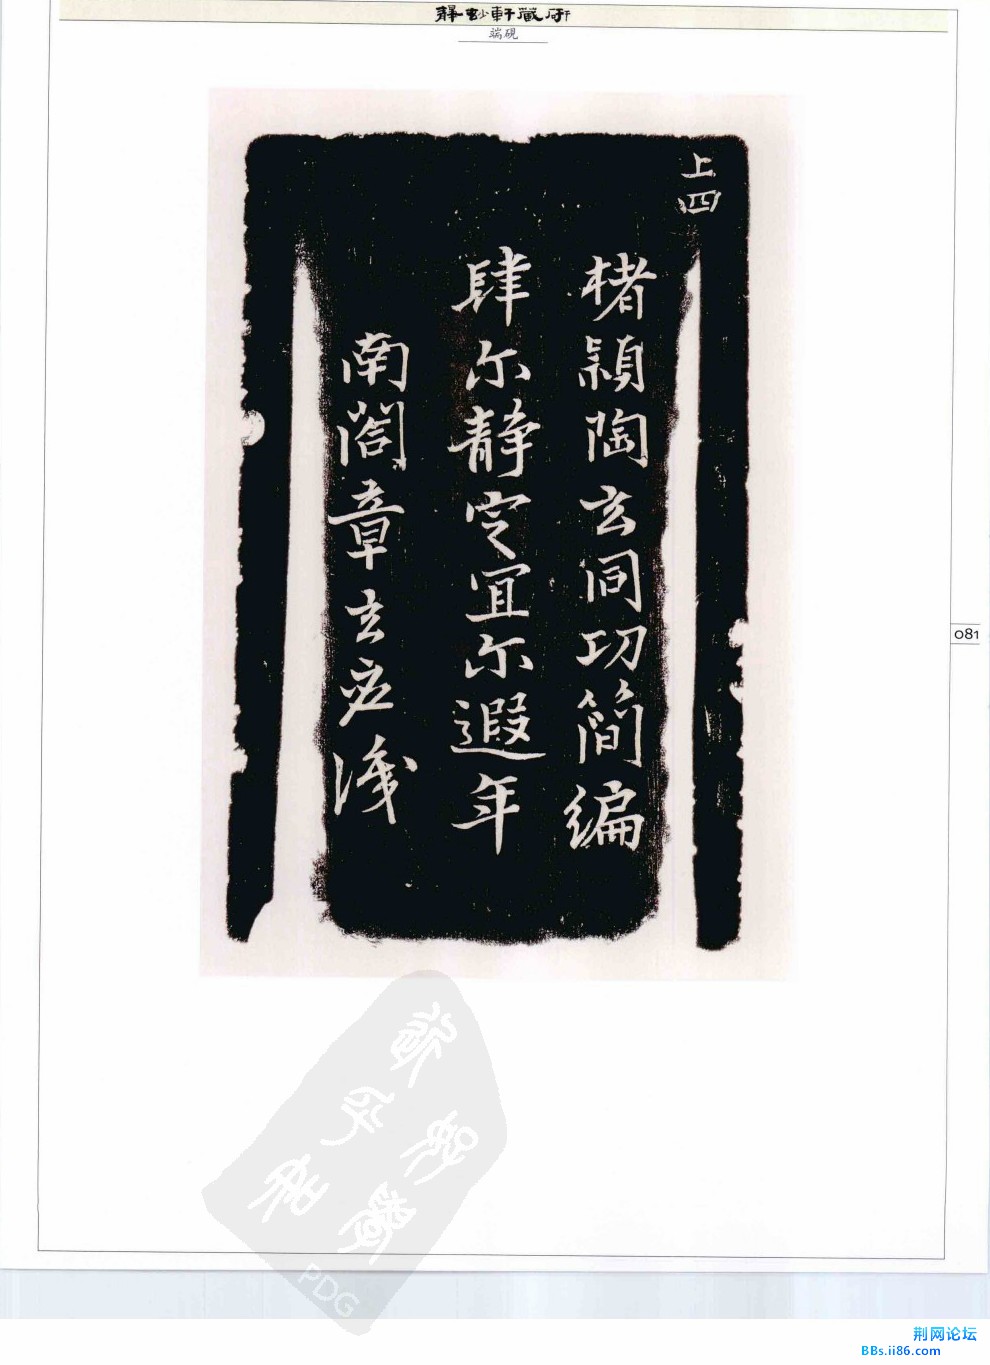 静妙軒藏硯
端硯
上四
楮穎陶玄同功簡編
肆尔静定宜尔遐年
南閣章玄應識
081
PDG
荆网论坛
BBs.ii86.com